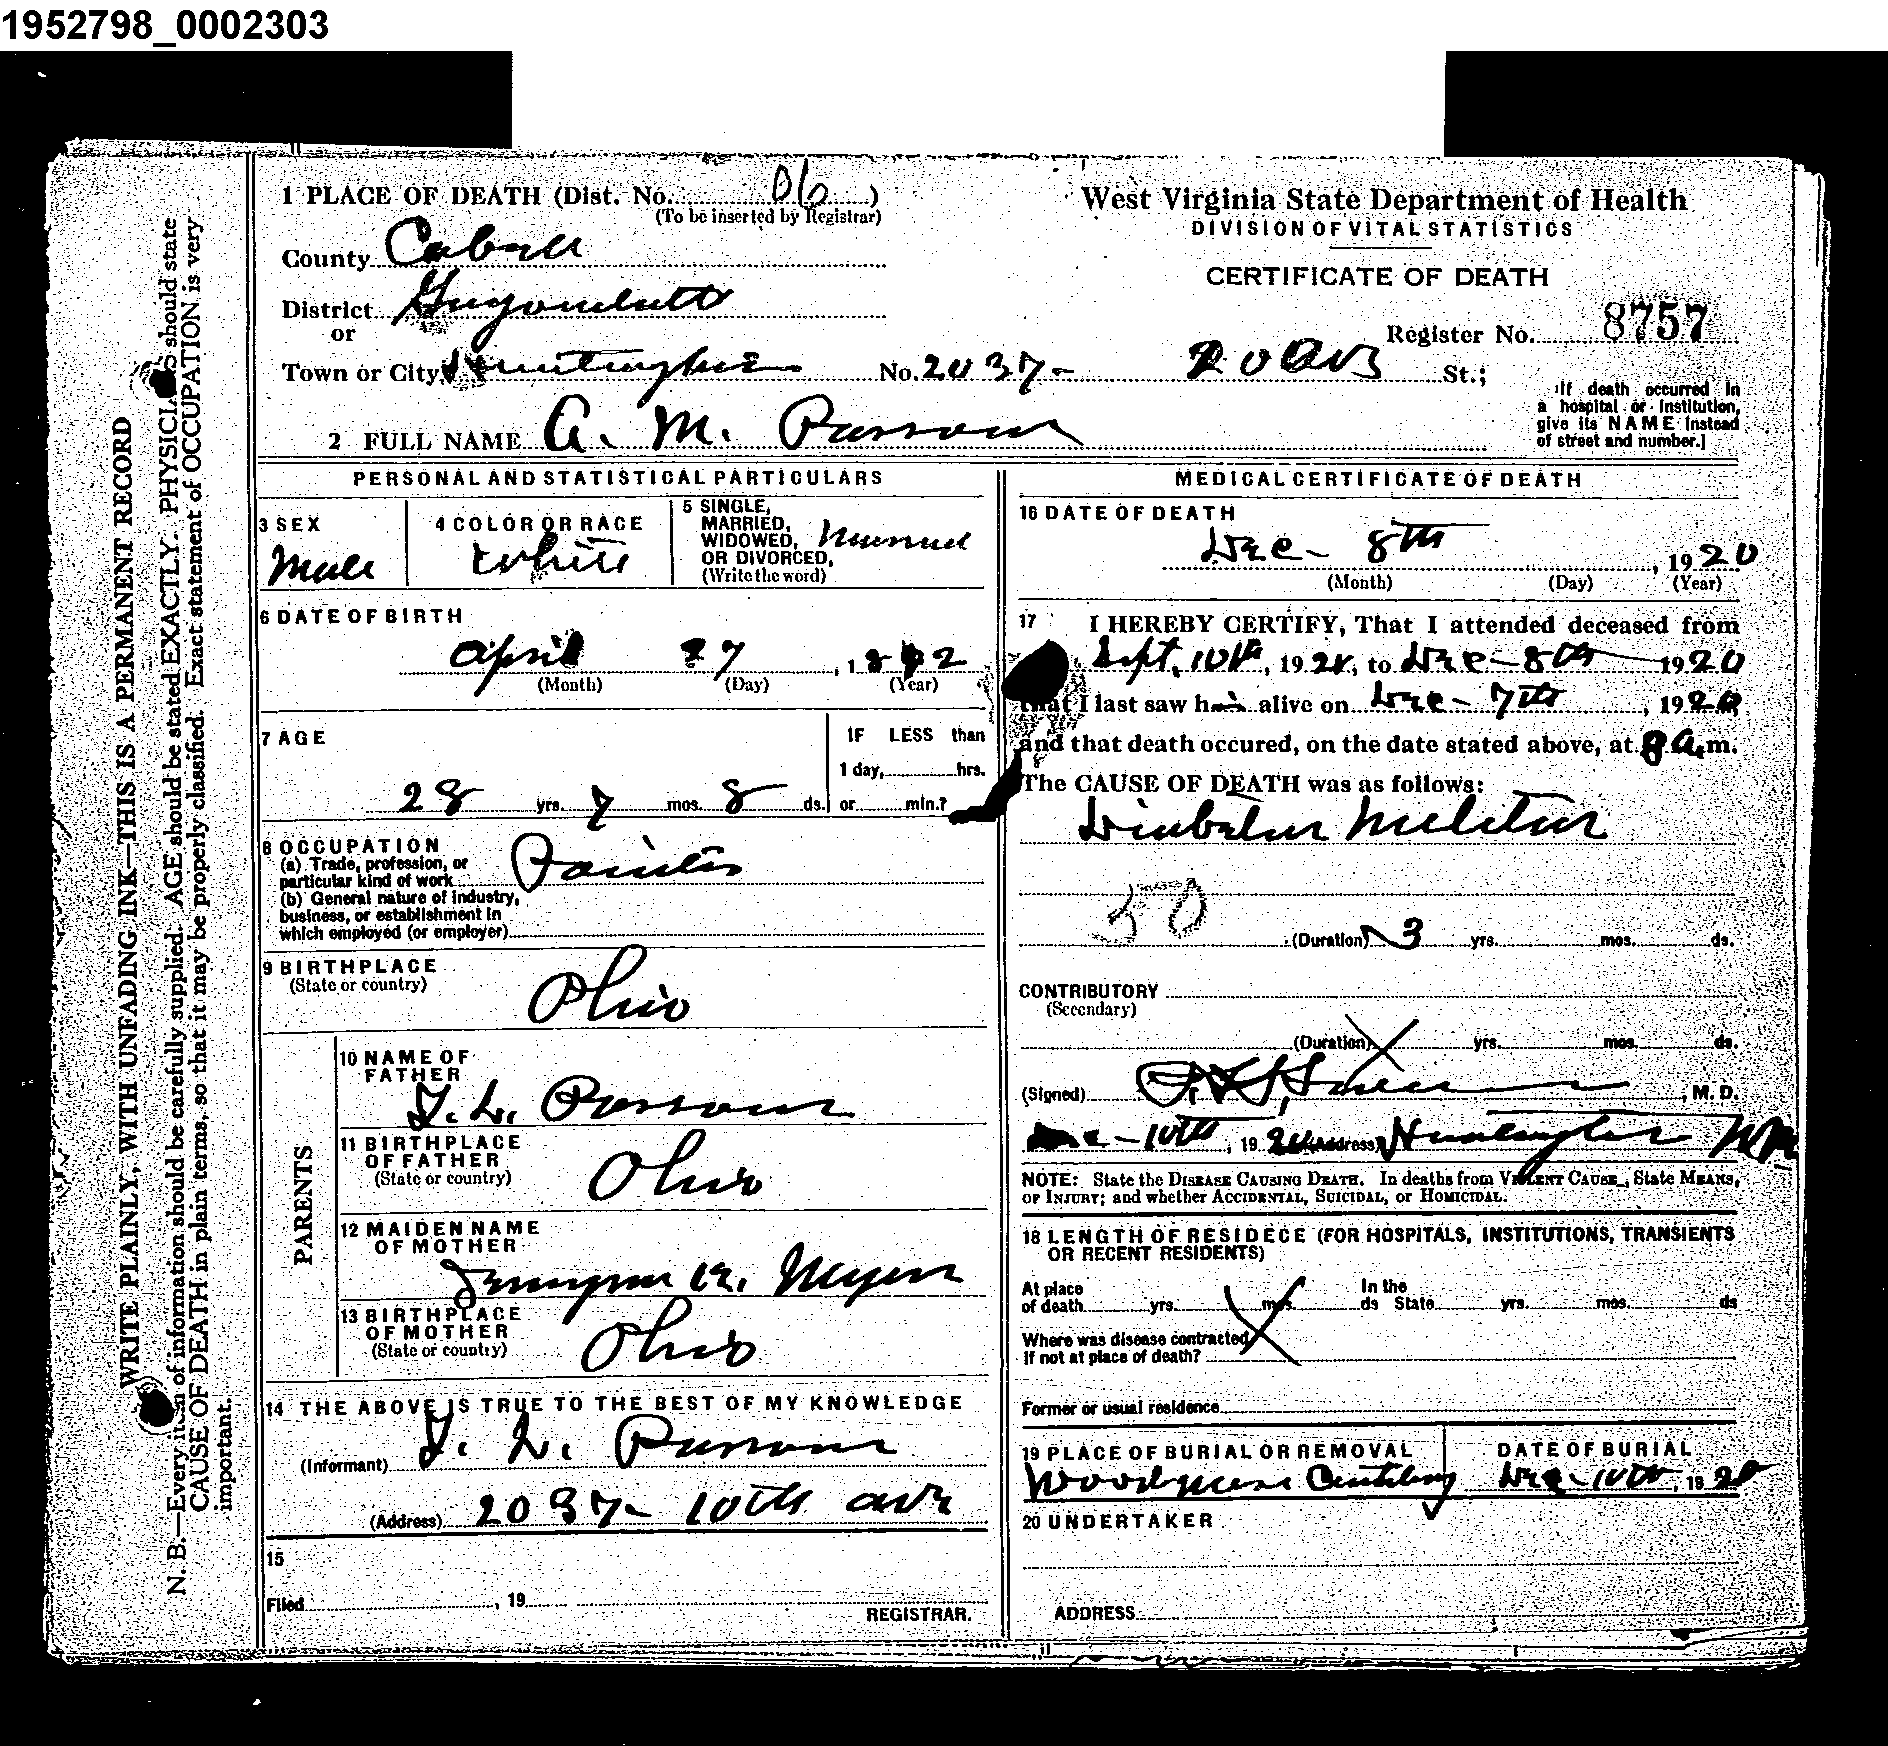 1952798_0002303
1 PLACE OF DEATH (Dist. No. 06 )
(To be inserted by Registrar)
County Cabell
District Guyandotte
or
Town or City Huntington No. 2037- 20 Ave St.;
2 FULL NAME A. M. Parsons
West Virginia State Department of Health
DIVISION OF VITAL STATISTICS
CERTIFICATE OF DEATH
Register No. 8757
[If death occurred in
a hospital or institution,
give its NAME instead
of street and number.]
PERSONAL AND STATISTICAL PARTICULARS
3 SEX
Male
4 COLOR OR RACE
White
5 SINGLE,
MARRIED,
WIDOWED,
OR DIVORCED,
(Write the word)
Married
6 DATE OF BIRTH
April 27, 1892
(Month) (Day) (Year)
7 AGE
28 yrs. 7 mos. 8 ds.
IF LESS than
1 day, hrs.
or min.?
8 OCCUPATION
(a) Trade, profession, or
particular kind of work Painter
(b) General nature of industry,
business, or establishment in
which employed (or employer)
9 BIRTHPLACE
(State or country)
Ohio
PARENTS
10 NAME OF
FATHER
J. L. Parsons
11 BIRTHPLACE
OF FATHER
(State or country)
Ohio
12 MAIDEN NAME
OF MOTHER
Myers
13 BIRTHPLACE
OF MOTHER
(State or country)
Ohio
14 THE ABOVE IS TRUE TO THE BEST OF MY KNOWLEDGE
(Informant) J. L. Parsons
(Address) 2037- 10th ave
15
Filed , 19
REGISTRAR.
MEDICAL CERTIFICATE OF DEATH
16 DATE OF DEATH
Dec- 8th , 1920
(Month) (Day) (Year)
17 I HEREBY CERTIFY, That I attended deceased from
Sept. 10th, 1920, to Dec-8th 1920
that I last saw him alive on Dec- 7th , 1920
and that death occured, on the date stated above, at 8 a.m.
The CAUSE OF DEATH was as follows:
Diabetus Melitus
50
(Duration) 3 yrs. mos. ds.
CONTRIBUTORY
(Secendary)
(Duration) yrs. mos. ds.
(Signed) , M. D.
Dec-10th, 1920 (Address) Huntington WVa
NOTE: State the DISEASE CAUSING DEATH. In deaths from VIOLENT CAUSE_, State MEANS,
OF INJURY; and whether ACCIDENTAL, SUICIDAL, or HOMICIDAL.
18 LENGTH OF RESIDECE (FOR HOSPITALS, INSTITUTIONS, TRANSIENTS
OR RECENT RESIDENTS)
At place In the
of death yrs. mos. ds State yrs. mos. ds
Where was disease contracted
If not at place of death?
Former or usual residence
19 PLACE OF BURIAL OR REMOVAL
Woodmere Cemetery
DATE OF BURIAL
Dec-10th, 1920
20 UNDERTAKER
ADDRESS
WRITE PLAINLY, WITH UNFADING INK—THIS IS A PERMANENT RECORD
N. B.—Every item of information should be carefully supplied. AGE should be stated EXACTLY. PHYSICIANS should state
CAUSE OF DEATH in plain terms, so that it may be properly classified. Exact statement of OCCUPATION is very
important.